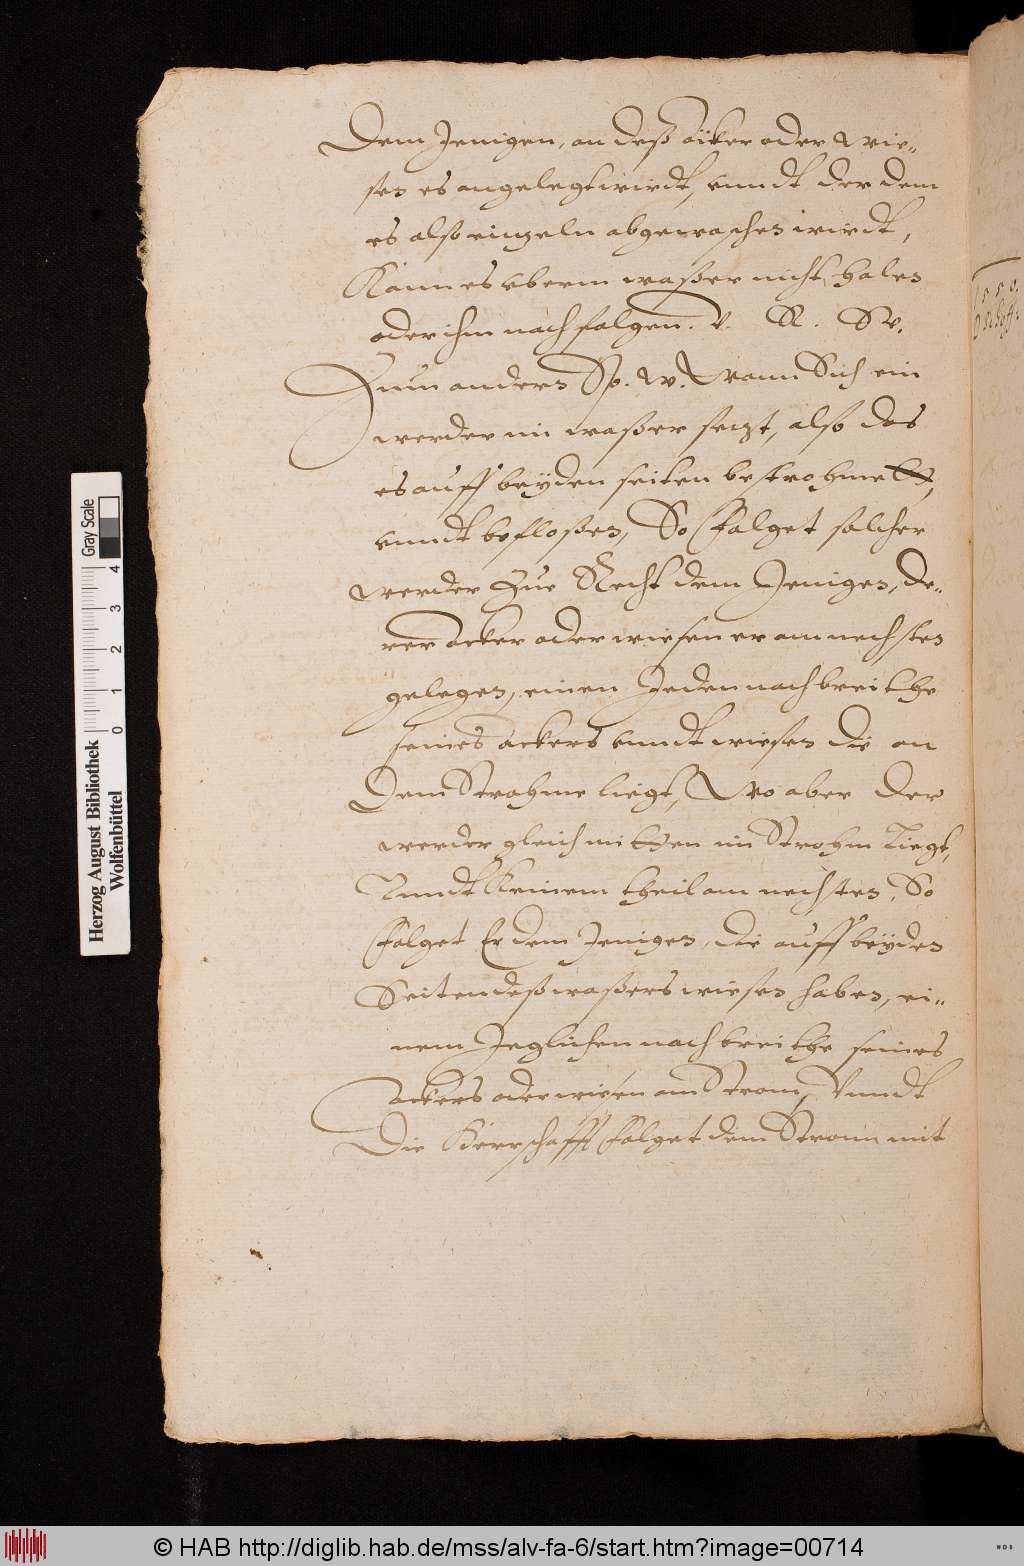 Dem Jenigen, an deß äcker oder wie-
sen es angelegt wirdt, vnndt der dem
es also einzeln abgewaschen wirdt,
Kann es vberm waßer nicht halen
oder ihm nach folgen. V. R. W.
Zum andern Sp. w. Wann Sich ein
werder im waßer sezt, also das
es auff beÿden seiten bestrohmett,
vnndt befloßen, So folget solcher
werder Zue Recht dem Jenigen, de-
rer acker oder wiesen er am nechsten
gelegen, einen Jeden nach breithe
seines ackers vnndt wiesen die an
Dem Strohme liegt, Wo aber der
werder gleich mitten im Strohm Liegt,
Vnndt Keinem theil am nechsten, So
folget Er dem Jenigen, die auff beÿden
Seiten deß waßers wiesen haben, ei-
nem Jeglichen nach breithe seines
ackers oder wiesen am Strom, Vnndt
Die Herrschafft folget dem Strom mit
1550.
Herzog August Bibliothek
Wolfenbüttel
Gray Scale
0 1 2 3 4
© HAB http://diglib.hab.de/mss/alv-fa-6/start.htm?image=00714